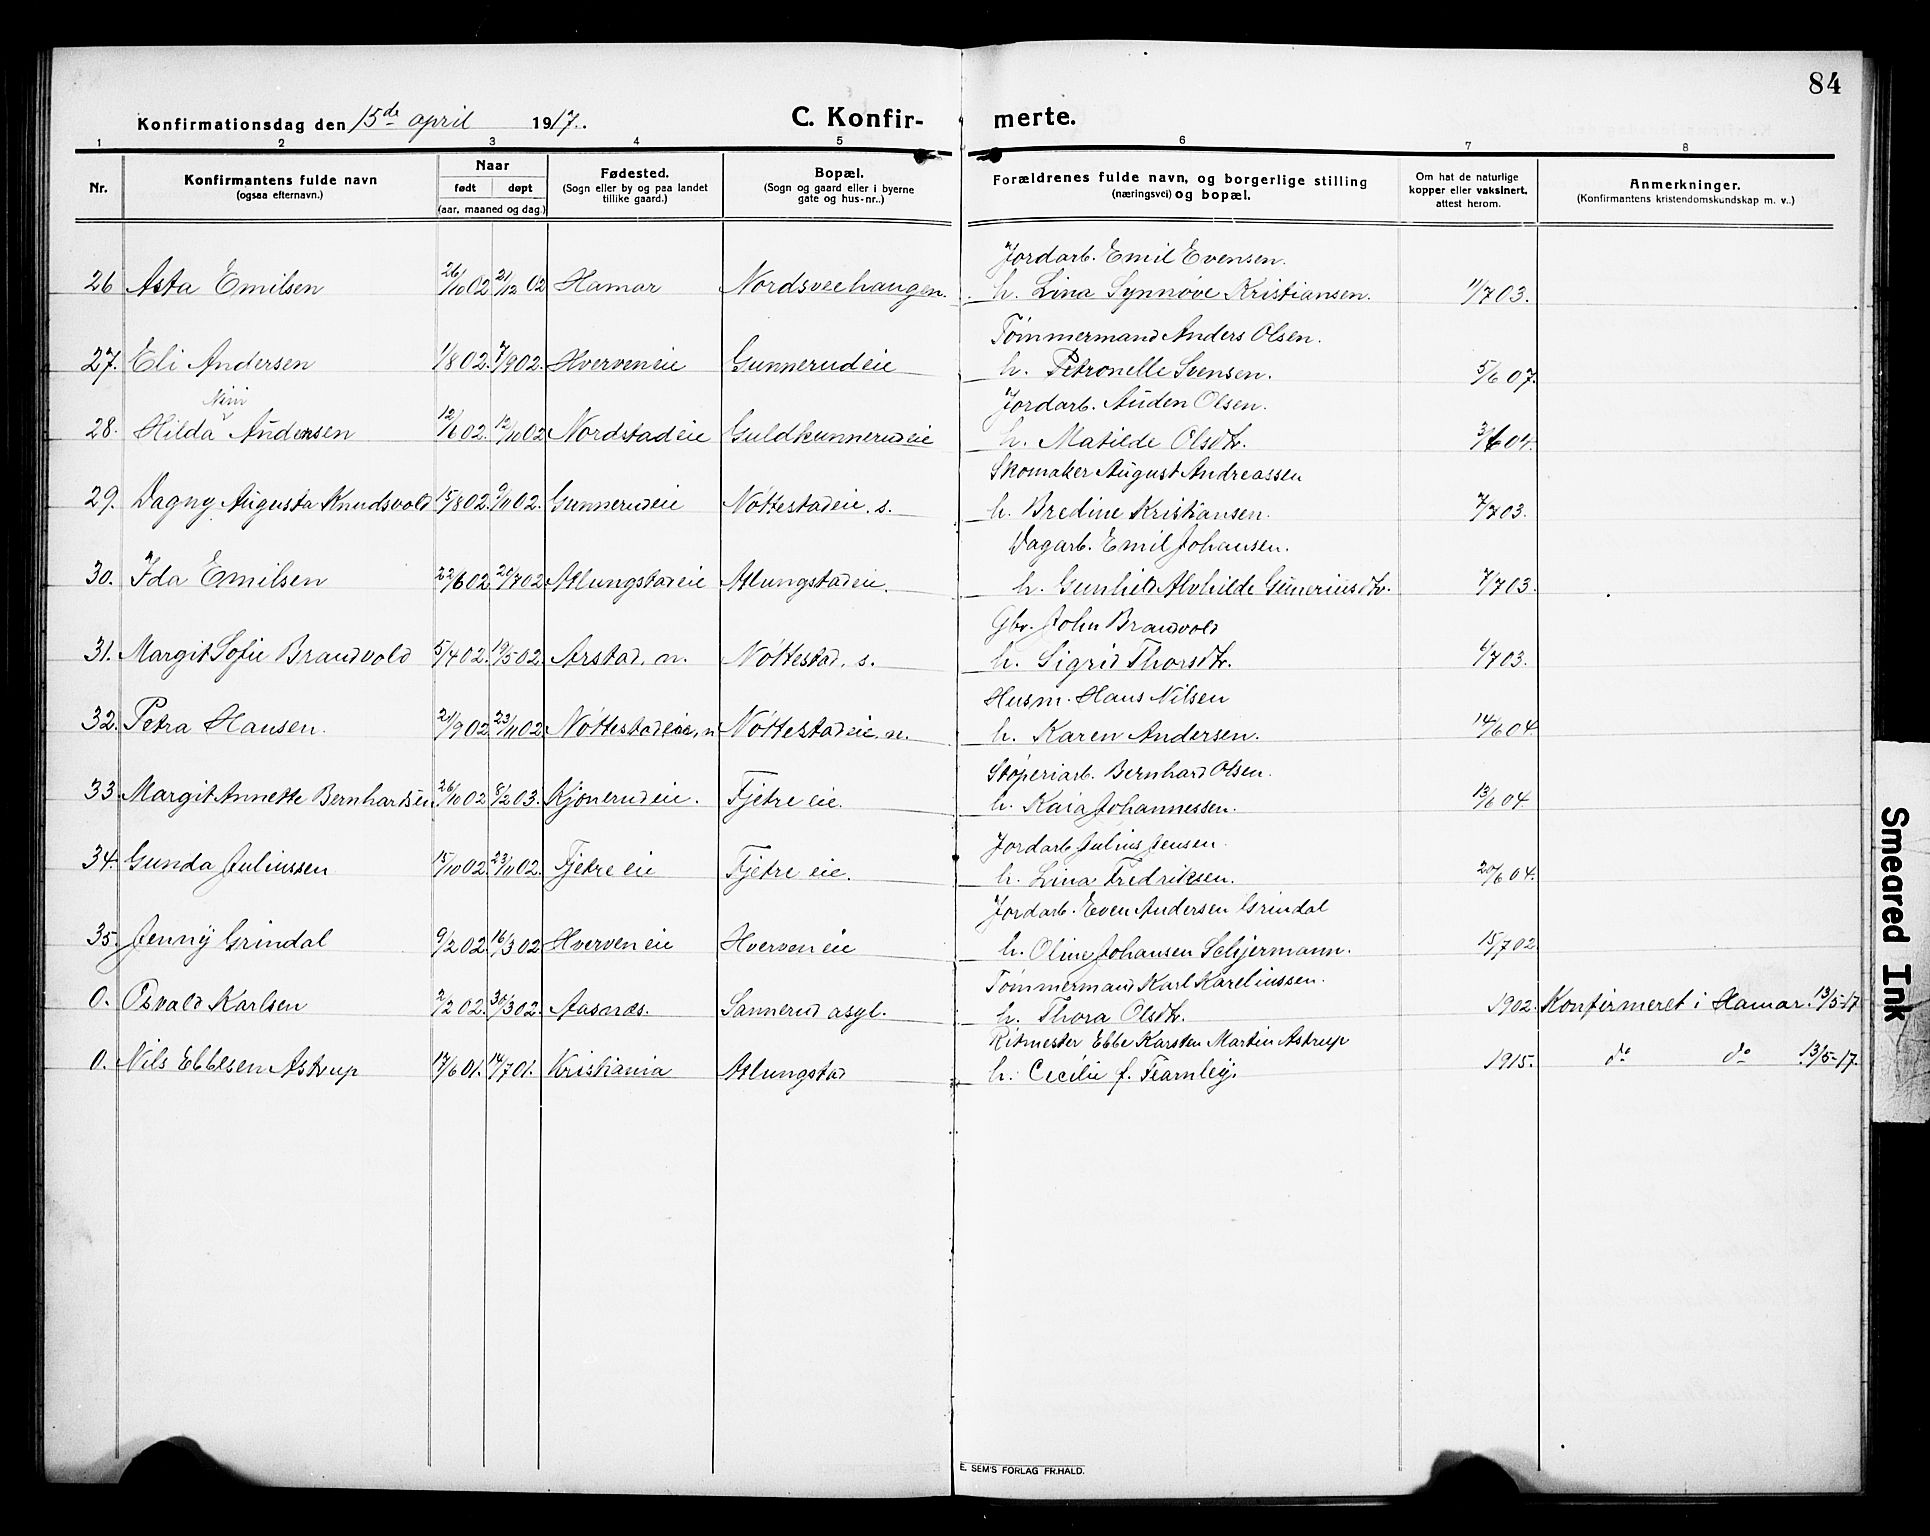 84
Konfirmationsdag den 15de april 1917.
C. Konfir- merte.
1 2 3 4 5 6 7 8
Nr. Konfirmantens fulde navn (ogsaa efternavn.) Naar født døpt (aar, maaned og dag.) Fødested. (Sogn eller by og paa landet tillike gaard.) Bopæl. (Sogn og gaard eller i byerne gate og hus-nr..) Forældrenes fulde navn, og borgerlige stilling (næringsvei) og bopæl. Om hat de naturlige kopper eller vaksinert, attest herom. Anmerkninger. (Konfirmantens kristendomskundskap m. v..)
Jordarb. Emil Evensen.
26 Asta Emilsen 26/10 02 21/12 02 Hamar Nordsveehaugen. h. Lina Synnøve Kristiansen. 11/7 03.
Tømmermand Anders Olsen.
27. Eli Andersen 1/8 02. 7/9 02. Hverven eie Gunnerud eie h. Petronelle Svensen. 5/6 07.
Jordarb. Auden Olsen.
28. Hilda Andensen 12/6 02. 12/10 02 Nordstad eie Guldkunnerud eie h. Matilde Olsdtr. 3/6 04.
Skomaker August Andreassen
29. Dagny Augusta Knudsvold 15/8 02. 9/11 02. Gunnerud eie Nøttestad eie. s. h. Bredine Kristiansen. 7/7 03.
Dagarb. Emil Johansen.
30. Ida Emilsen 22/6 02 20/7 02 Atlungstad eie Atlungstad eie. h. Gunhild Alvhilde Guneriusdtr. 7/7 03.
Gbr. John Brandvold
31. Margit Sofie Brandvold 5/4 02. 19/5 02. Arstad. n. Nøttestad. s. h. Sigrid Thorsdtr. 6/7 03.
Husm. Hans Nilsen
32. Petra Hansen. 21/9 02. 23/11 02. Nøttestad eie, n Nøttestad eie. n. h. Karen Andersen. 14/6 04.
Støperiarb. Bernhard Olsen.
33. Margit Annette Bernhartsen 26/10 02 8/2 03. Kjønerud eie. Tjetre eie. h. Kaia Johannessen. 13/6 04
Jordarb Julius Jensen.
34. Gunda Juliussen 15/10 02 23/11 02. Tjetre eie Tjetre eie. h. Lina Fredriksen. 20/6 04.
Jordarb. Even Andersen Grindal
35. Jenny Grindal 9/2 02. 16/3 02 Hverven eie Hverven eie h. Oline Johansen Schjermann. 15/7 02.
Tømmermand Karl Kareliussen.
0. Osvald Karlsen 2/2 02. 30/3 02. Aasnes. Sannerud asyl. h. Thora Olsdtr. 1902. Konfirmeret i Hamar. 13/5-17
Ritmester Ebbe Karsten Martin Astrup
0. Nils Ebbesen Astrup 17/6 01. 14/7 01. Kristiania Atlungstad h. Cecilie f. Fearnley. 1915. do do 13/5-17.
E. SEM'S FORLAG FR.HALD.
Smeared Ink